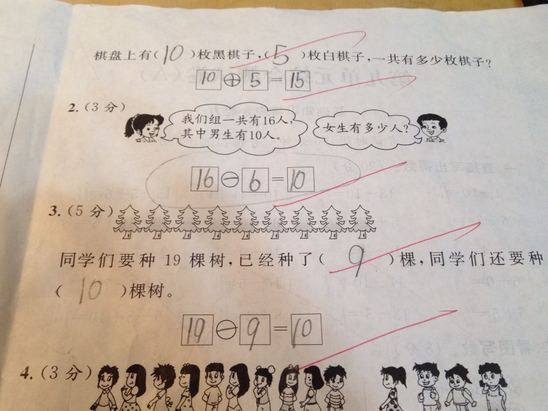 棋盘上有(10)枚黑棋子,(5)枚白棋子,一共有多少枚棋子?
10+5=15
2.(3分)
我们组一共有16人,
其中男生有10人。
女生有多少人?
16-6=10
3.(5分)
同学们要种19棵树,已经种了(9)棵,同学们还要种
(10)棵树。
19-9=10
4.(3分)